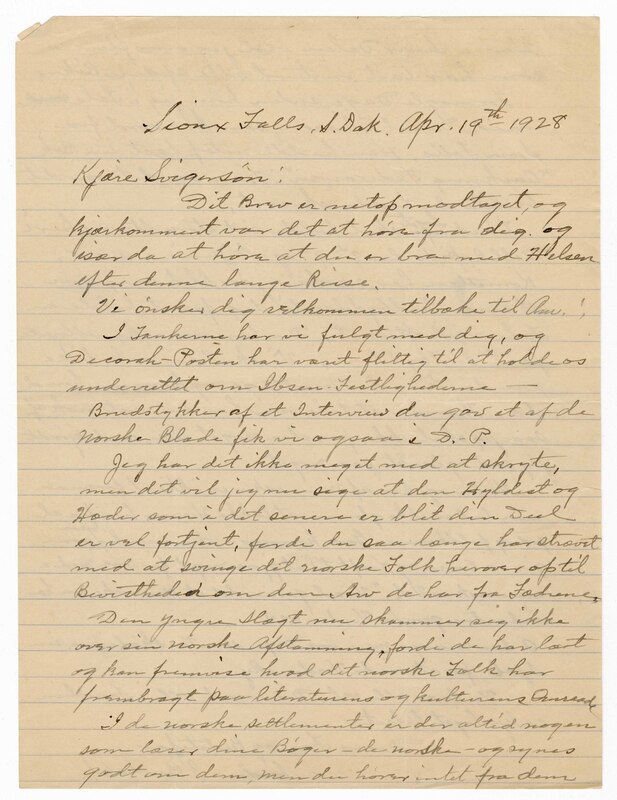 Sioux Falls, S. Dak. Apr. 19th 1928
Kjære Svigersön!
Dit Brev er netop modtaget, og
kjærkomment var det at höre fra dig. og
især da at höre at du er bra med Helsen
efter denne lange Reise.
Vi önsker dig velkommen tilbake til Am.!
I Tankerne har vi fulgt med dig, og
Decorah-Posten har været flittig til at holde os
underrettet om Ibsen-Festlighederne —
Brudstykker af et Interview du gav et af de
norske Blade fik vi ogsaa i D.-P.
Jeg har det ikke meget med at skryte,
men det vil jeg nu sige at den Hyldest og
Hæder som i det senere er blit din Deel
er vel fortjent, fordi du saa længe har strævet
med at svinge det norske Folk herover op til
Bevistheded om den Arv de har fra Fædrene.
Den yngre Slægt nu skammer sig ikke
over sin norske Afstamning, fordi de har lært
og kan fremvise hvad det norske Folk har
frembragt paa literaturens og kulturens
I de norske settlementer er der altid nogen
som læser dine Bøger – de norske – og synes
godt om dem, men du hører intet fra dem